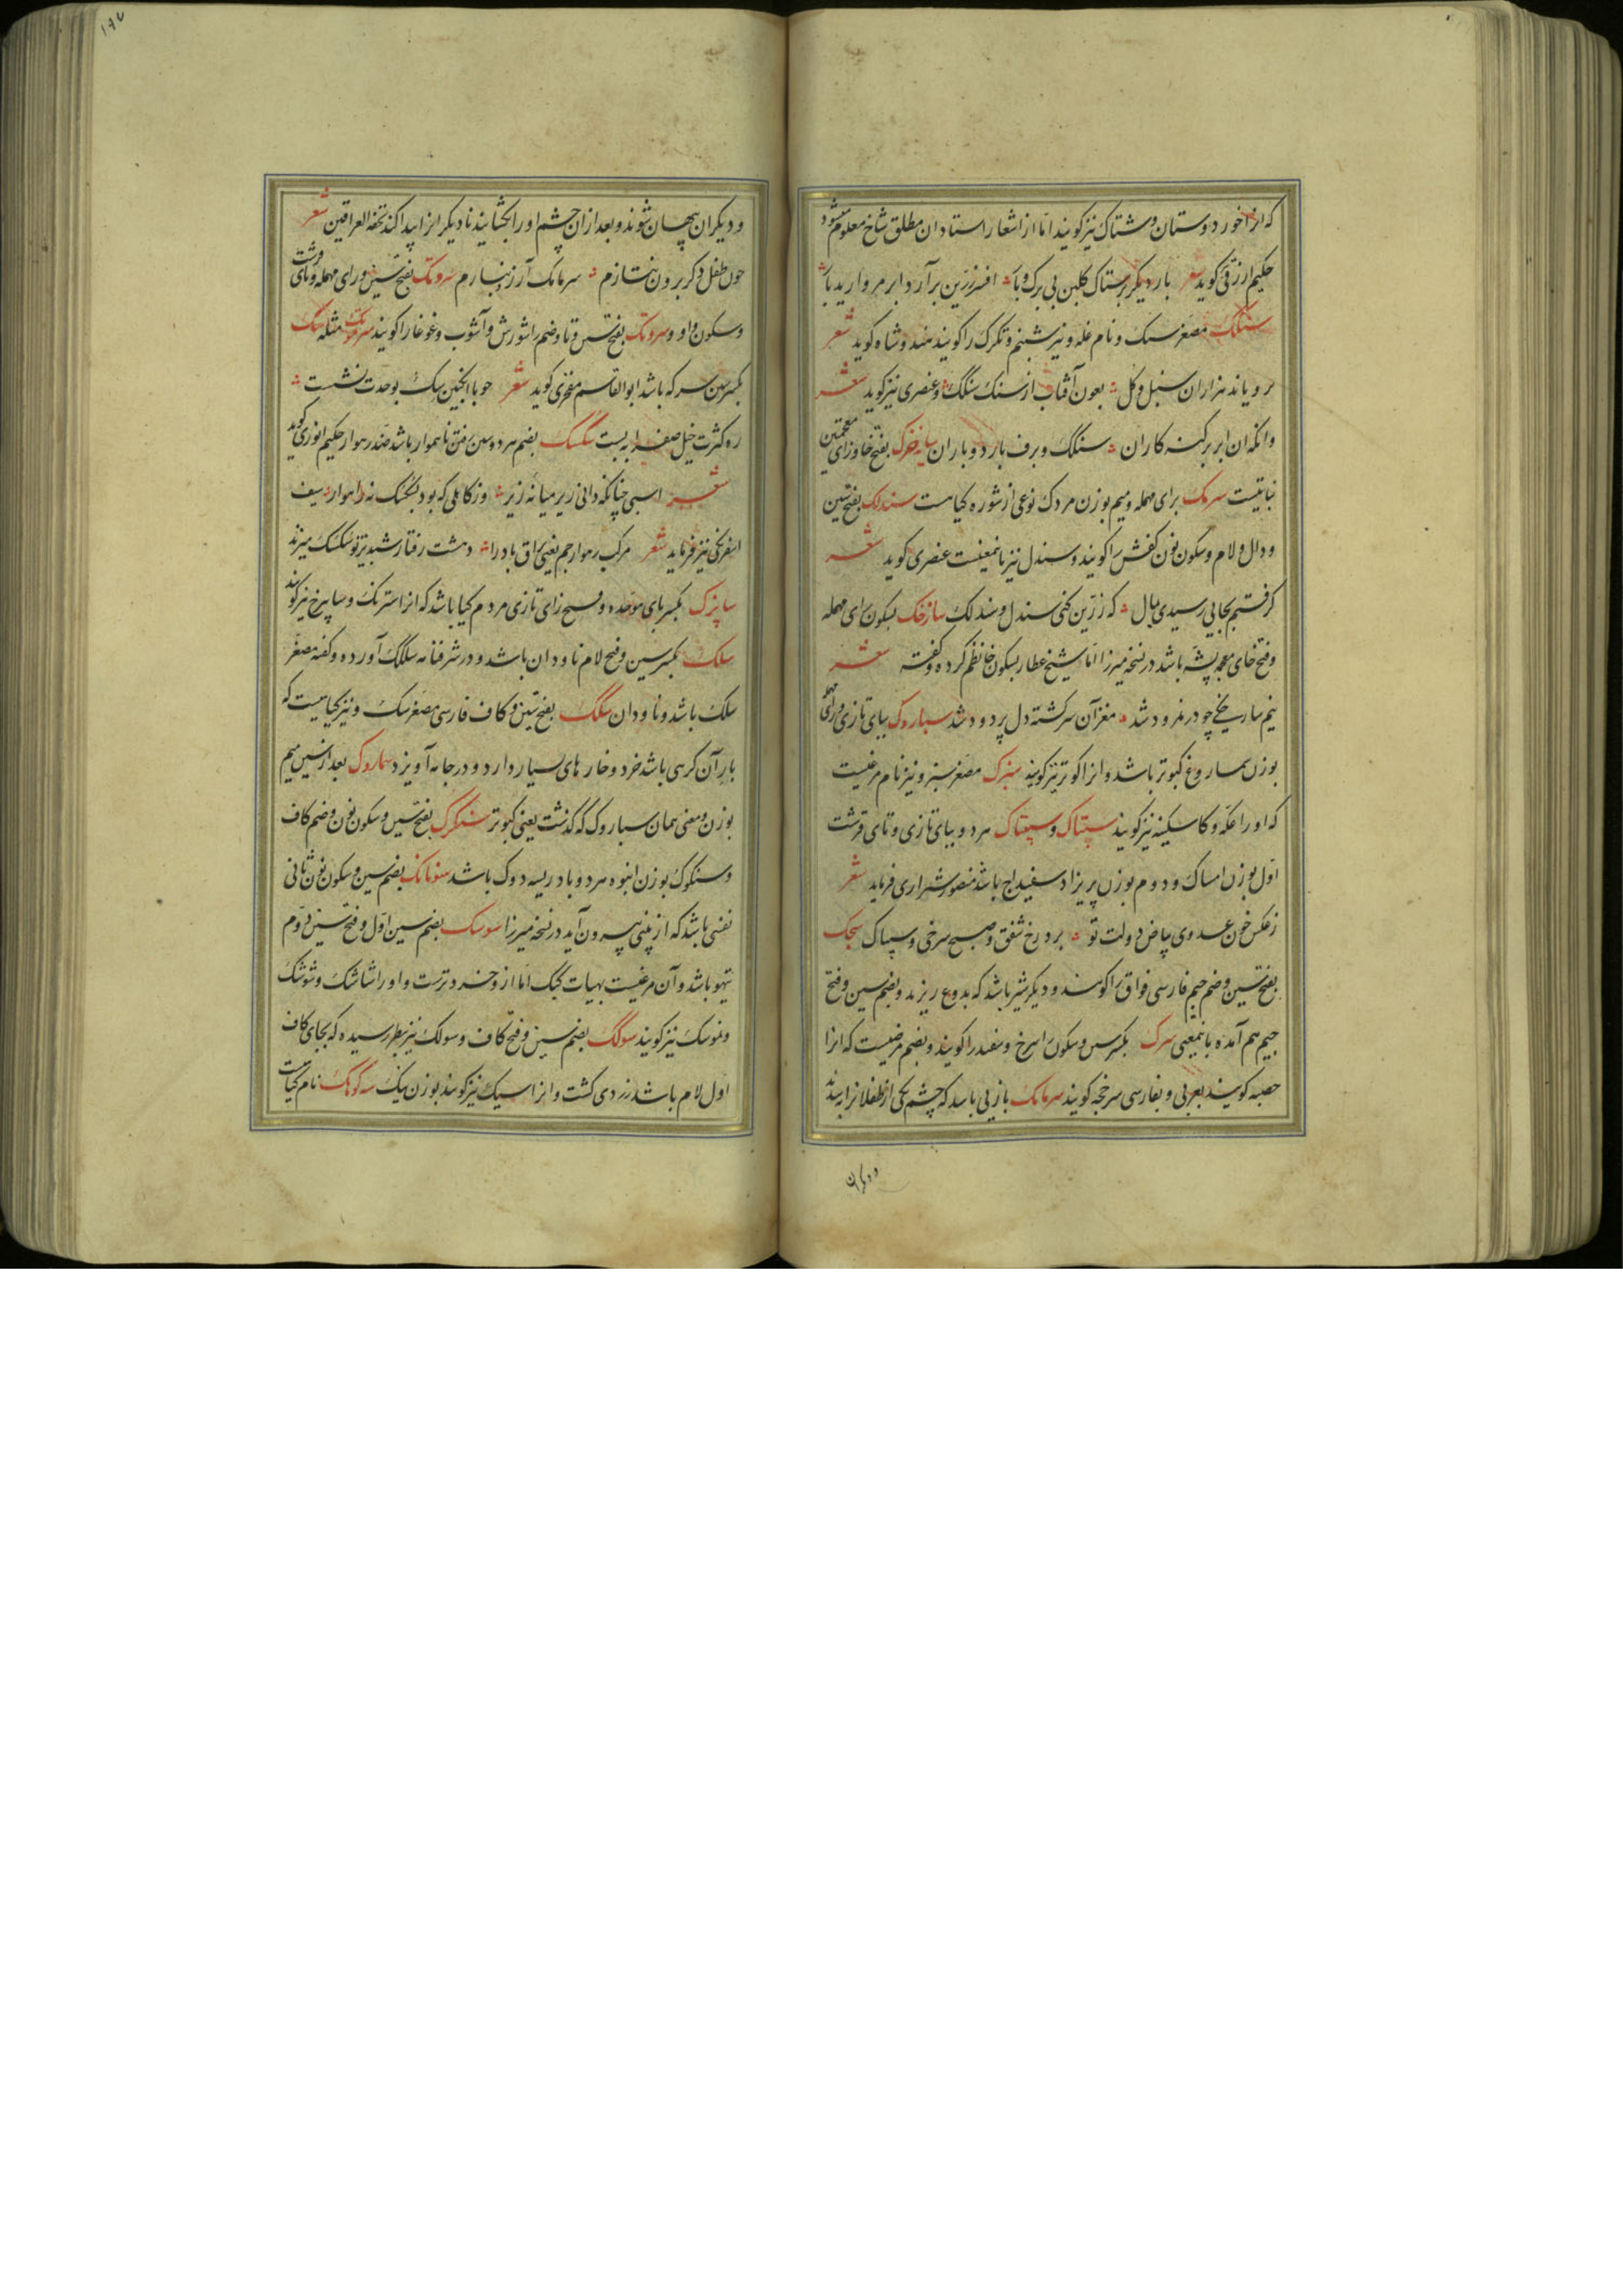 که انرا خورد وستان و شتاک نیز کویند اما از اشعار استادان مطلق شاخ معلوم میشود
حکیم ازرقی کوید شعر بار دیکر بر ستاک کلبن بی برک و بار افسر زرین برآرد ابر مروارید بار
سنکک مصغر سنک و نام غله و نیز شبنم و تکرک را کویند هند و شاه کوید شعر
بر و یاند هزاران سنبل و کل بعون آفتاب از سنک سنکک و عنصری نیز کوید شعر
وانکه ان ابر بر کنه کاران سنکک و برف بارد و باران سا خزک بفتح خا و زای معجمتین
نباتیست سرمک برای مهمله و میم بوزن مردک نوعی از شوره کیاهست سندلک بفتح سین
و دال و لام و سکون نون کفش را کویند و سندل نیز بانمعنیست عنصری کوید شعر
کرفتم بجایی رسیدی بمال که زرین کنی سندل و سندلک سارخک بسکون رای مهمله
و فتح خای معجمه پشه باشد در نسخه میرزا اما شیخ عطار بسکون خا نظم کرده و کفته شعر
نیم سارخکی چو در نمرود شد مغز آن سرکشته دل پر دود شد سباروک ببای تازی و رای مهمله
بوزن سماروغ کبوتر باشد و انرا کوتر نیز کویند سبزک مصغر سبز و نیز نام مرغیست
که او را عکه و کاسکینه نیز کویند سپتاک و سپیتاک هر دو ببای تازی و تای قرشت
اول بوزن امساک و دوم بوزن پریزاد سفیداج باشد منصور شیرازی فرماید شعر
زعکس خون عدوی بیاض دولت تو برد رخ شفق و صبح سرخی و سپتاک سجک
بفتح سین و ضم جیم فارسی فواق را کویند و دیکر شیر باشد که بدوغ ریزند و بضم سین و فتح
جیم هم آمده بانمعنی سرک بکسر سین و سکون را سرخ و سفید را کویند و بضم مرضیست که انرا
حصبه کویند بعربی و بفارسی سرخجه کویند سرمامک بازیی باشد که چشم یکی از طفلانرا به بندند
و دیکران
و دیکران پنهان شوند و بعد از ان چشم او را بکشایند تا دیکرانرا پیدا کند تحفة العراقین شعر
چون طفل دکر برون نتازم سرمامک آرزو نبازم سروتک بفتح سین و رای مهمله و تای قرشت
و سکون واو و سروتک بفتح سین و تا و ضم را شورش و آشوب و غوغا را کویند سرموتک مثله سک
بکسر سین سرکه باشد ابو القاسم مفخری کوید شعر چو با انکبین سک بوحدت نشست
ره کثرت خیل صفرا به بست سکسک بضم هر دو سین رفتن ناهموار باشد ضد رهوار حکیم انوری کوید
شعر اسبی چنانکه دانی زیر میانه زیر وز کاهلی که بود نه سکسک نه راهوار سیف
اسفرنکی نیز فرماید شعر مرکب رهوار جم یعنی براق باد را دهشت رفتار شبدیز تو سکسک میزند
سابزک بکسر بای موحده و فتح زای تازی مردم کیا باشد که انرا استرنک و سابیزج نیز کویند
سلک بکسر سین و فتح لام ناودان باشد و در شرفنامه سلکک آورده و کفته مصغر
سلک باشد و ناودان سکک بفتح سین و کاف فارسی مصغر سک و نیز کیاهیست که
بار آن کرهی باشد خرد و خارهای بسیار دارد و در جامه آویزد سماروک بعد از سین میم
بوزن و معنی همان سباروک که کذشت یعنی کبوتر سنکرک بفتح سین و سکون نون و ضم کاف
و سنکوک بوزن انبوه هر دو بادریسه دوک باشد سنونانک بضم سین و سکون نون ثانی
نفسی باشد که از بینی بیرون آید در نسخه میرزا سوسک بضم سین اول و فتح سین دوم
تیهو باشد و آن مرغیست بهیات کبک اما از و خردترست و او را شاشک و شوشک
و نموسک نیز کویند سوکک بضم سین و فتح کاف و سولک نیز بنظر رسیده که بجای کاف
اول لام باشد زردی کشت و انرا سیک نیز کویند بوزن نیک سه کونک نام کیاهیست